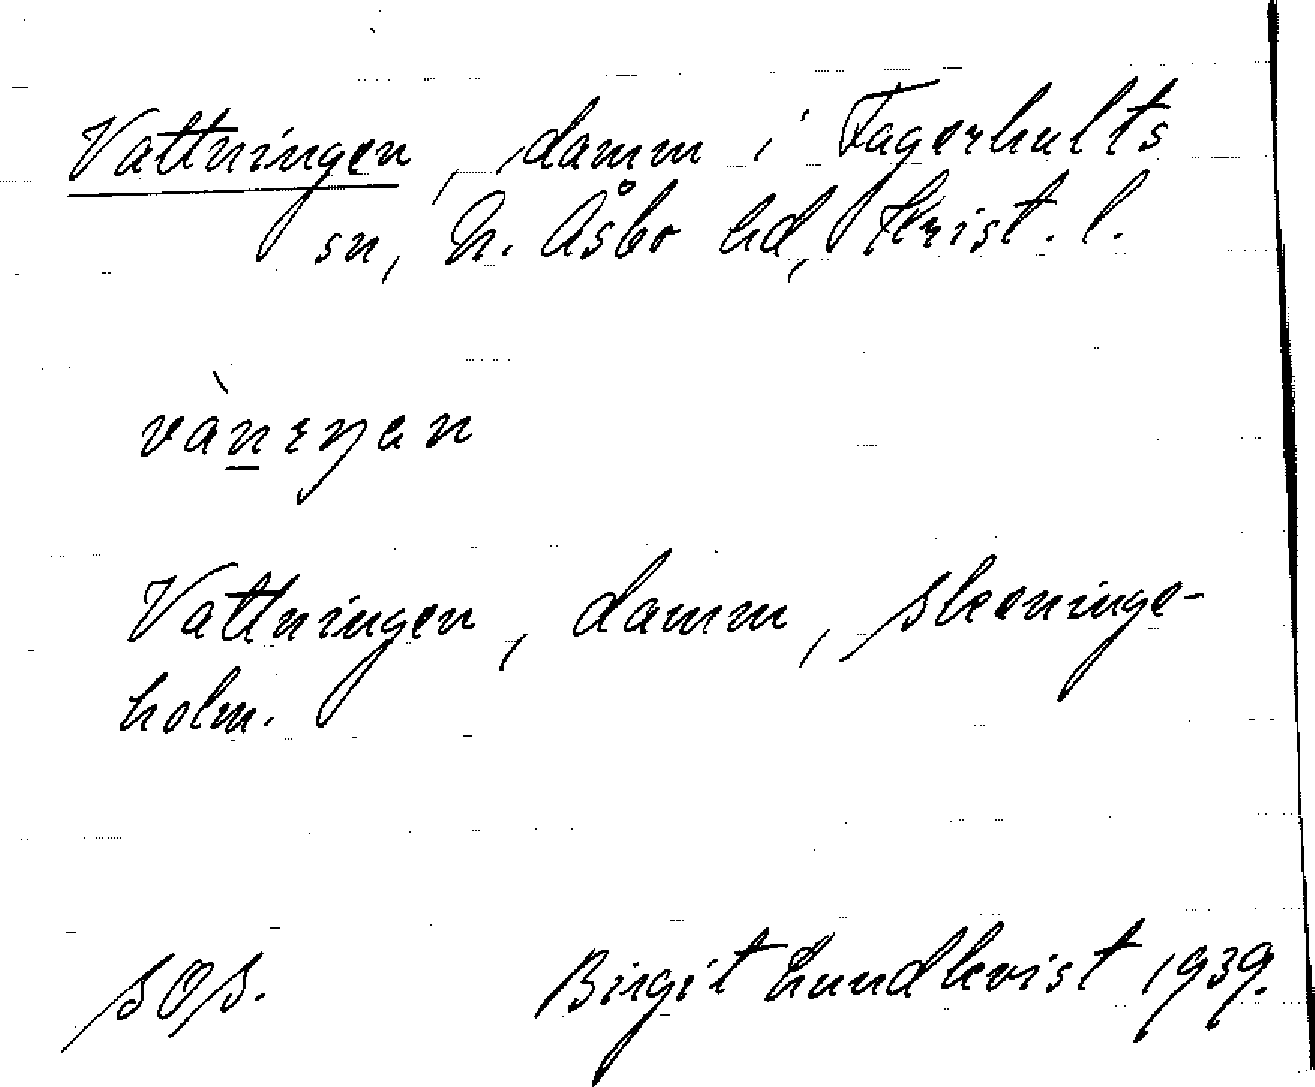 Vattningen, damm i Fagerhults
sn, N. Åsbo hd, Krist. l.
vànıŋan
Vattningen, damm, Skeninge-
holm.
SOS. Birgit Lundkvist 1939.